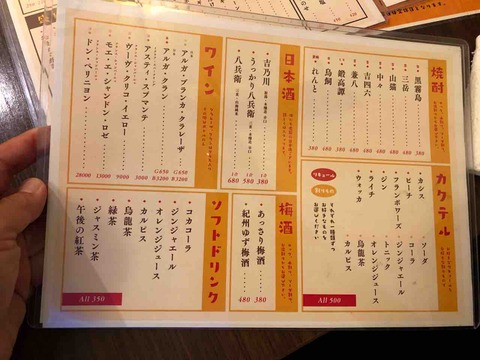 焼酎
黒霧島 380
三岳 480
山猫 480
中々 480
吉四六 480
兼八 480
鍛高譚 380
鳥飼 480
れんと 380
日本酒
吉乃川
うっかり八兵衛
八兵衛
1合 380
1合 580
1合 680
ワイン
アルガ・ブランカ・クラレーザ G650 B3200
アルガ・クラン G650 B3200
アスティ・スプマンテ 3000
ヴーヴ・クリコ・イエロー 9000
モエ・エ・シャンドン・ロゼ 13000
ドン・ペリニヨン 28000
カクテル
リキュール
割りもの
それぞれ一種類ずつ
お好きなものを
お選びください
カシス
ピーチ
フランボワーズ
ジン
ライチ
ウォッカ
ソーダ
コーラ
ジンジャエール
トニック
オレンジジュース
烏龍茶
カルピス
All 500
梅酒
あっさり梅酒 380
紀州ゆず梅酒 480
ソフトドリンク
コカコーラ
ジンジャエール
オレンジジュース
カルピス
烏龍茶
緑茶
ジャスミン茶
午後の紅茶
All 350